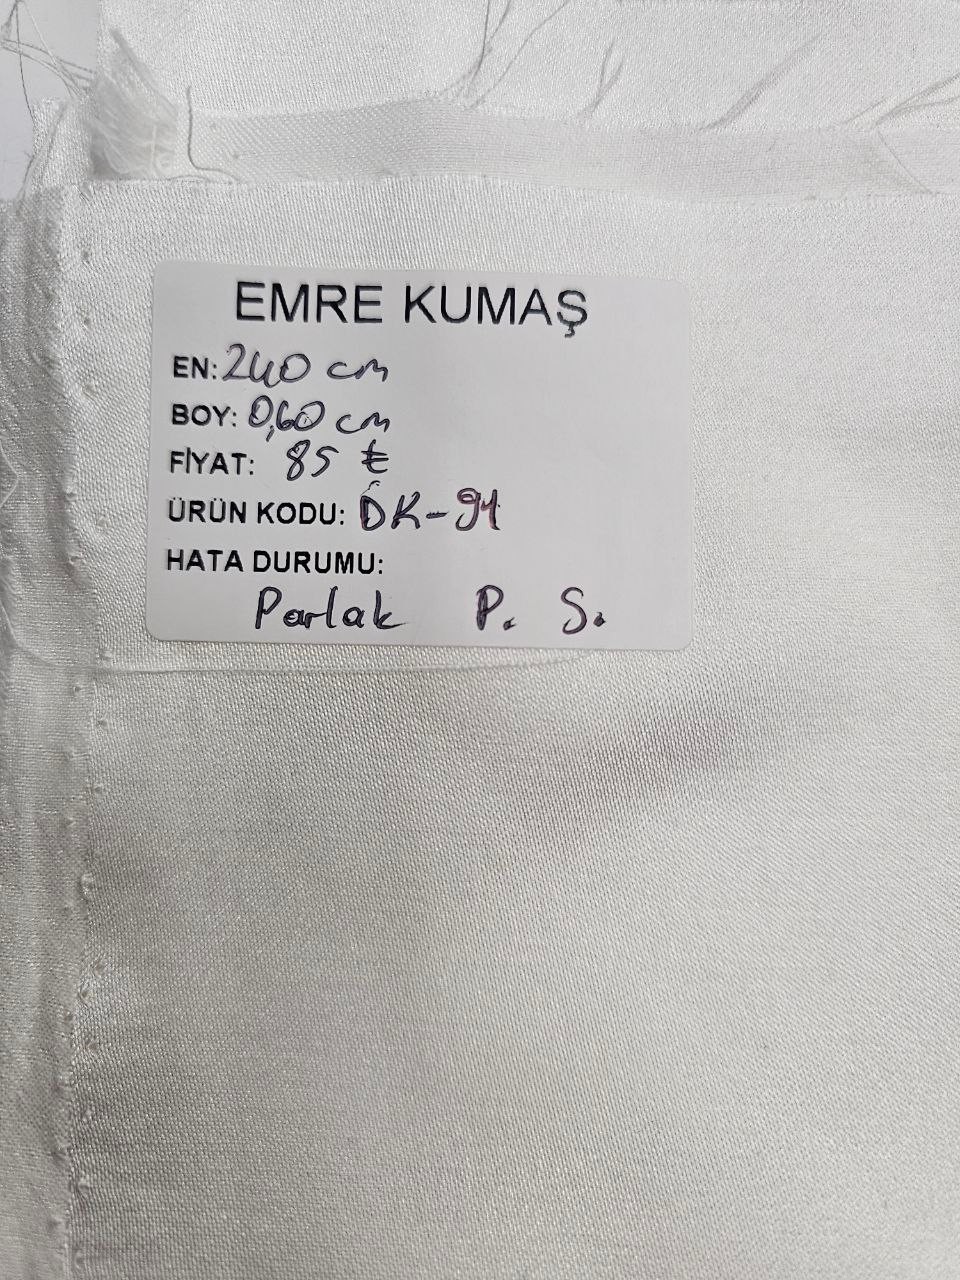 EMRE KUMAŞ
EN: 240 cm
BOY: 0,60 cm
FİYAT: 85 ₺
ÜRÜN KODU: DK-94
HATA DURUMU:
Parlak P. S.